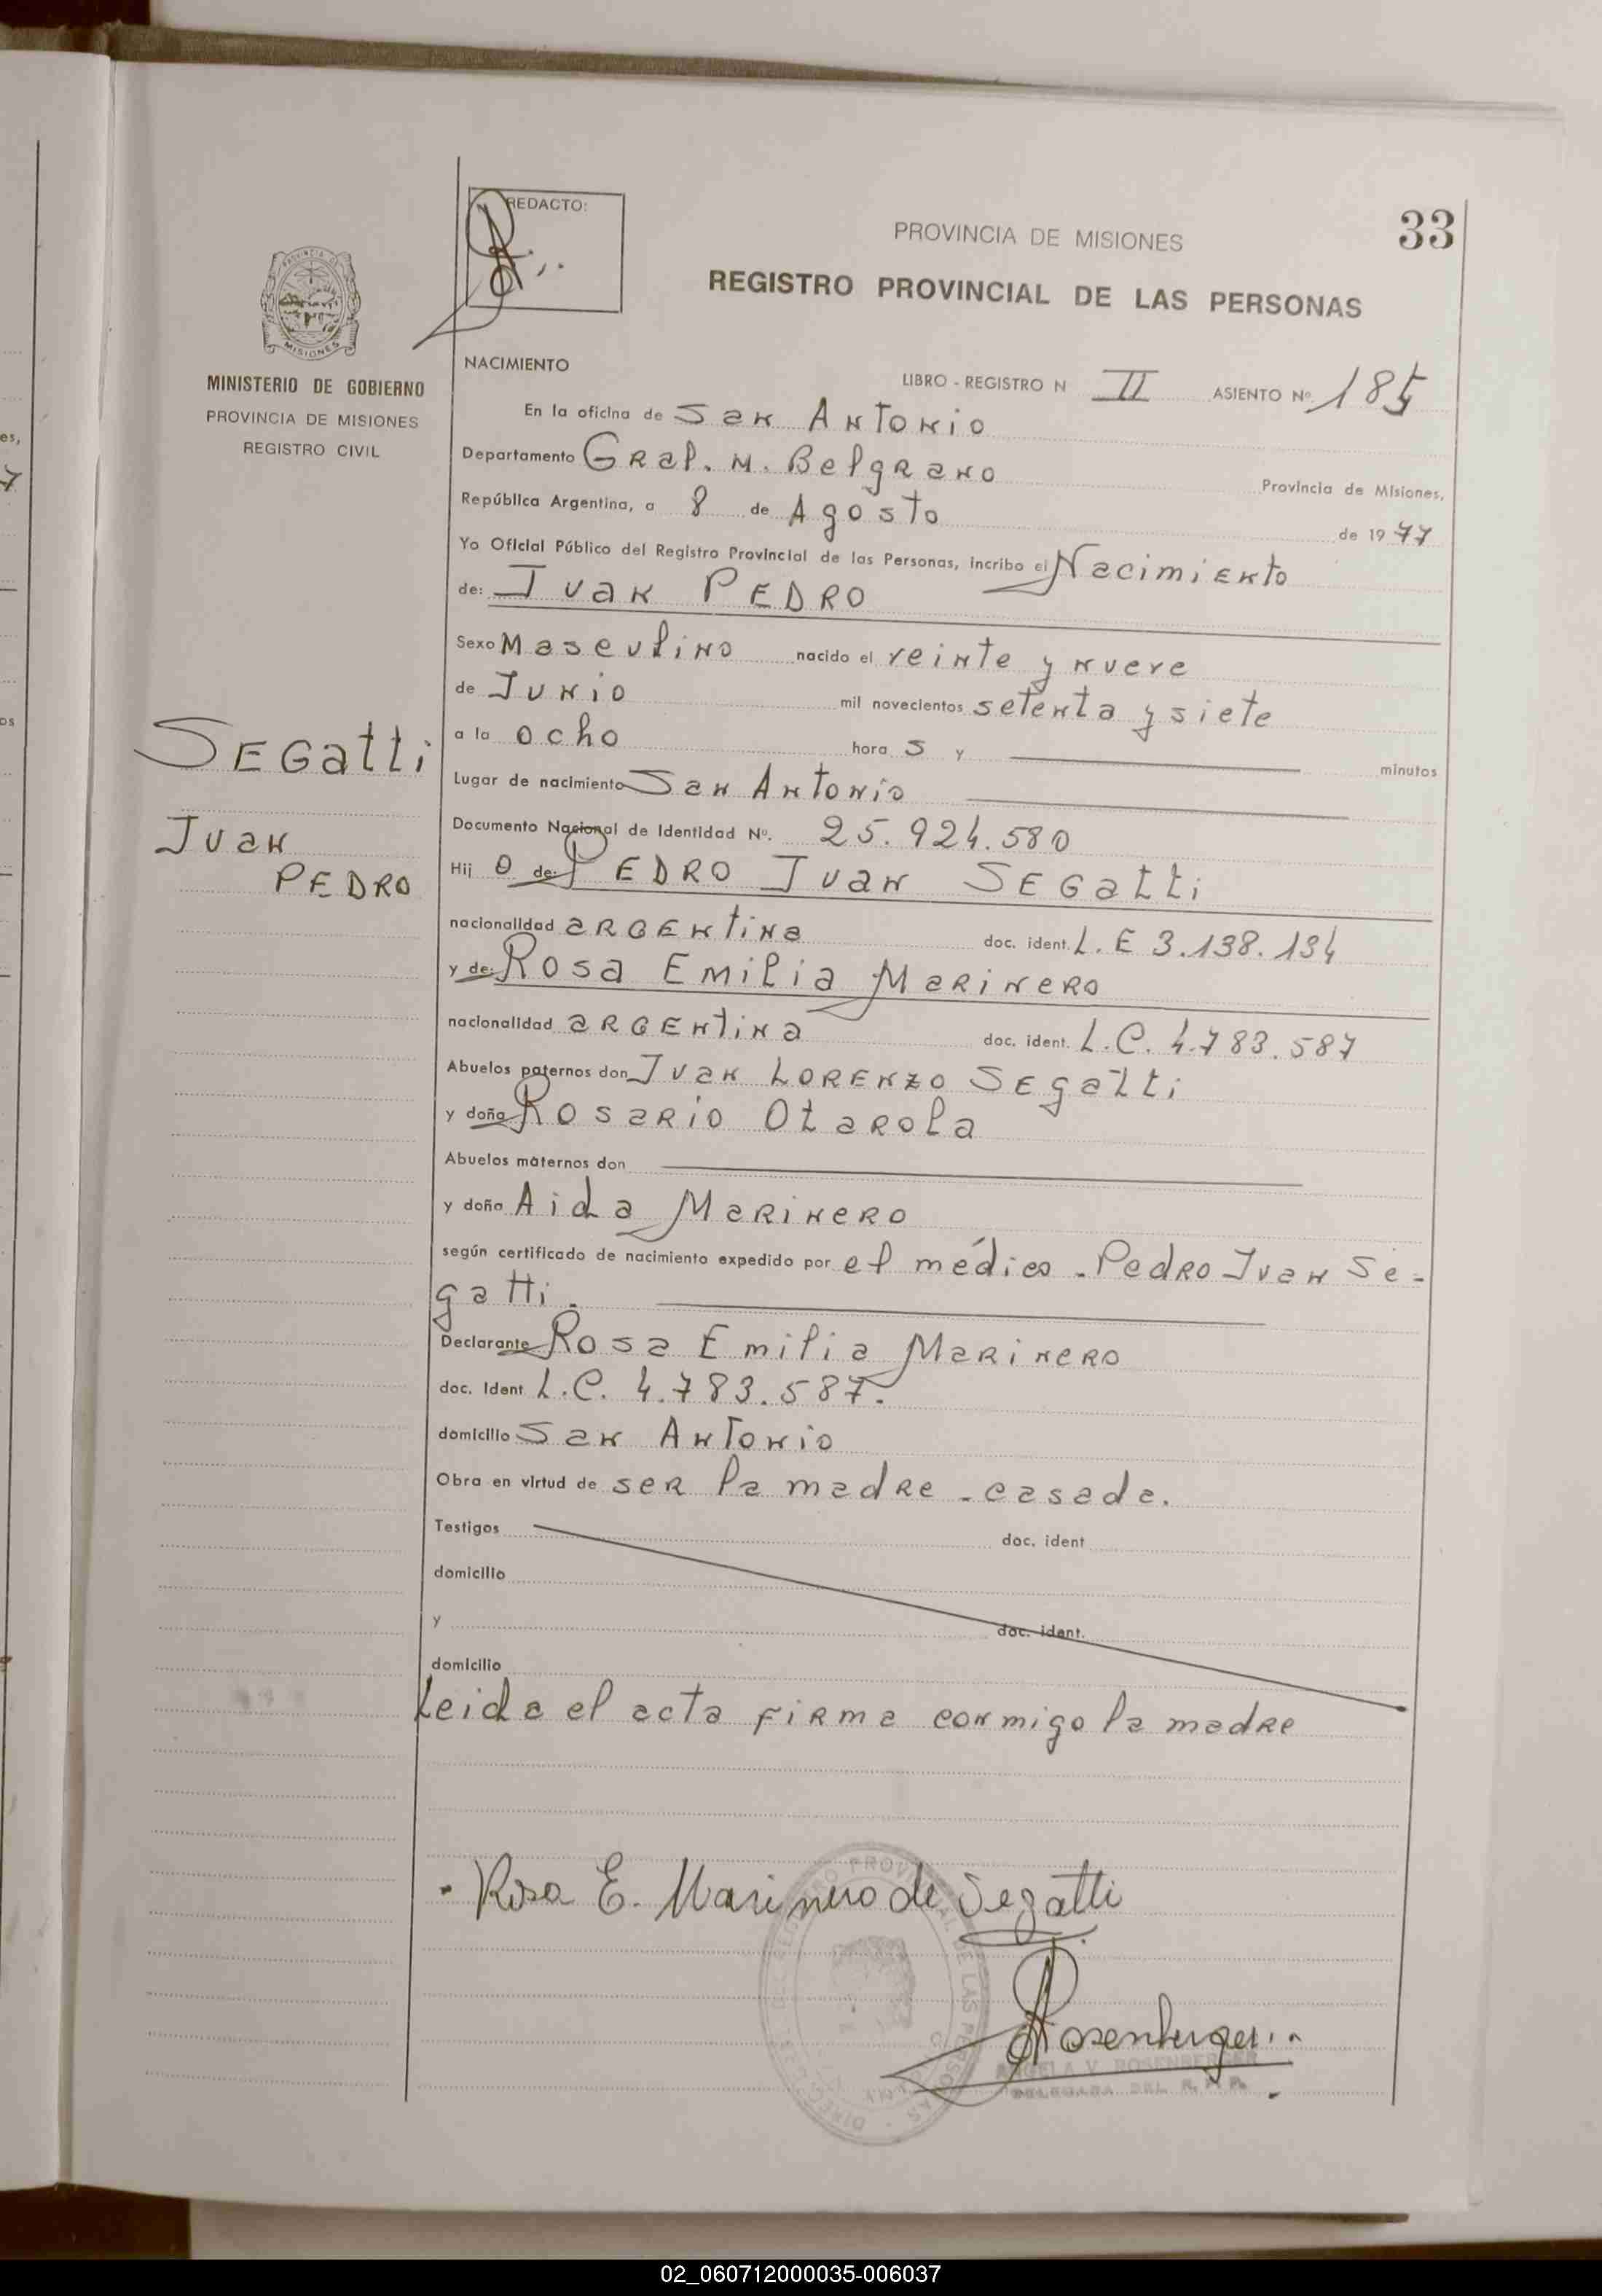 REDACTO:
33
PROVINCIA DE MISIONES
REGISTRO PROVINCIAL DE LAS PERSONAS
PROVINCIA DE
MISIONES
MINISTERIO DE GOBIERNO
PROVINCIA DE MISIONES
REGISTRO CIVIL
NACIMIENTO
LIBRO - REGISTRO N II ASIENTO Nº. 185
En la oficina de San Antonio
Departamento Gral. M. Belgrano Provincia de Misiones,
República Argentina, a 8 de Agosto de 1977
Yo Oficial Público del Registro Provincial de las Personas, incribo el Nacimiento
de: Juan PEDRO
Sexo Masculino nacido el veinte y nueve
de Junio mil novecientos setenta y siete
a la ocho hora s y minutos
Lugar de nacimiento San Antonio
Documento Nacional de Identidad Nº. 25.924.580
Hij o de: PEDRO Juan SEGatti
nacionalidad argentina doc. ident. L.E 3.138.134
y de: Rosa Emilia Marinero
nacionalidad argentina doc. ident. L.C. 4.783.587
Abuelos paternos don Juan Lorenzo Segatti
y doña Rosario Otarola
Abuelos maternos don
y doña Aida Marinero
según certificado de nacimiento expedido por el médico - Pedro Juan Se-
gatti.
Declarante Rosa Emilia Marinero
doc. Ident L.C. 4.783.587.
domicilio San Antonio
Obra en virtud de ser la madre - casada.
Testigos doc. ident
domicilio
y doc. ident.
domicilio
Leida el acta firma conmigo la madre
SEGatti
Juan
PEDRO
Rosa E. Marinero de Segatti
Rosenberger
ANGELA V. ROSENBERGER
DELEGADA DEL R. P. P.
02_060712000035-006037